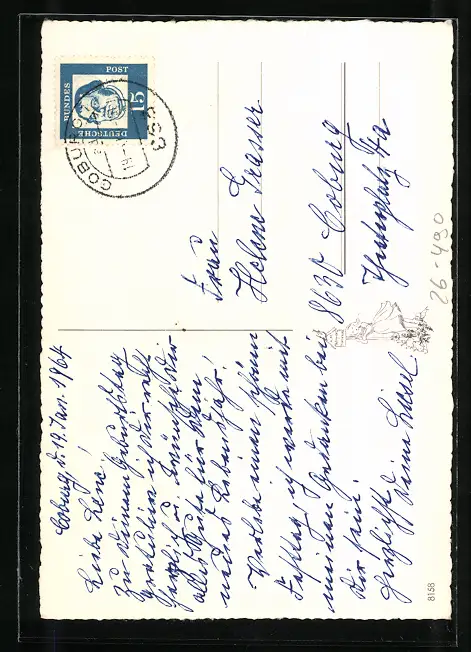 Coburg, d. 19. Jan. 1964
Liebe Lene!
Zu Deinem Geburtstag
gratuliere ich Dir recht
herzlich u. wünsche Dir
alles Gute für Dein
neues Lebensjahr!
Verlebe einen schönen
Festtag, ich werde mit
meinen Gedanken bei
Dir sein.
Herzlichst
Deine Liesel
DEUTSCHE
BUNDES
POST
15
COBURG
863
Frau
Helene Grasser
8630 Coburg
26-490
8158